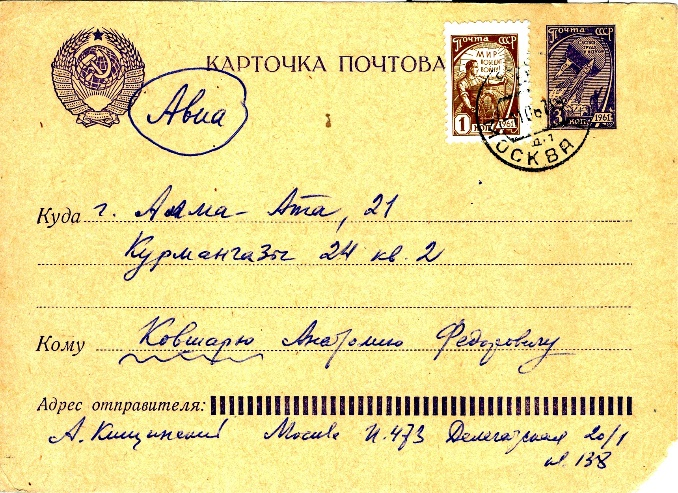 КАРТОЧКА ПОЧТОВА
ПОЧТА СССР
МИР
1 КОП. 1961
ПОЧТА СССР
3 КОП. 1961
МОСКВА
Авиа
Куда г. Алма-Ата, 21
Курмангазы 24 кв. 2
Кому Ковшарю Анатолию Федоровичу
Адрес отправителя:
А. Кищинский Москва И-473 Делегатская 20/1
кв. 138